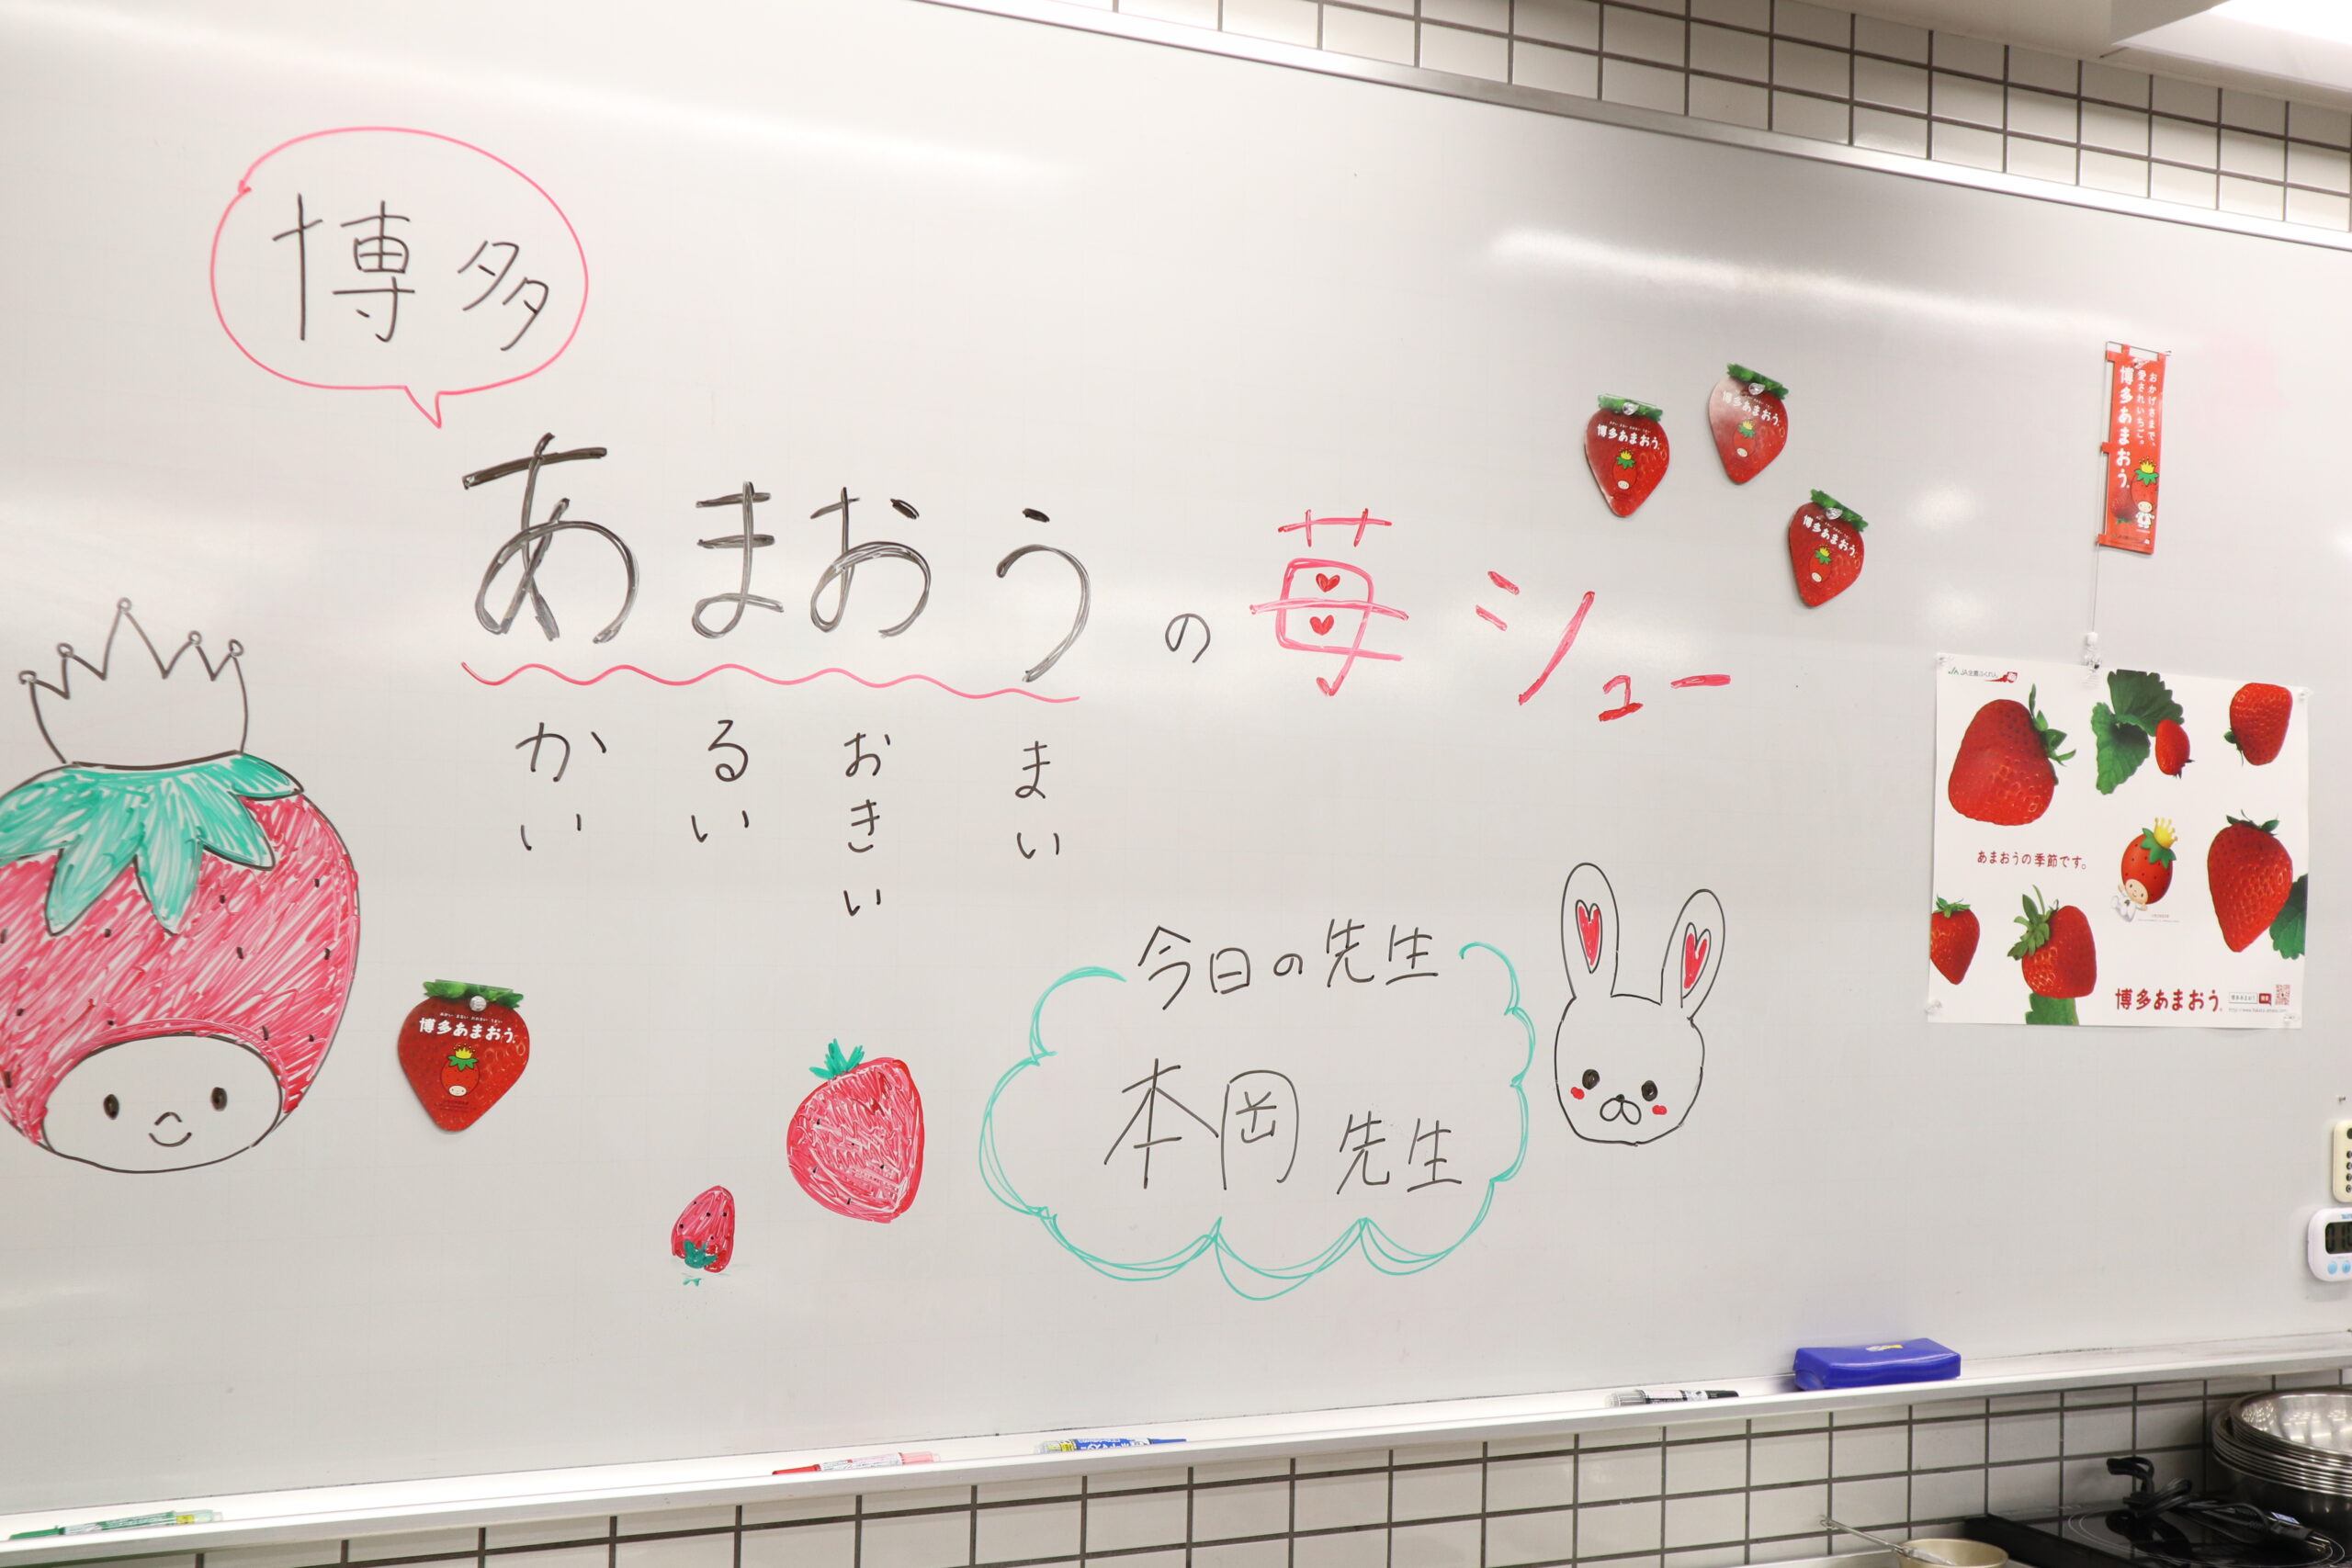 博多
あまおうの苺シュー
かい
るい
おきい
まい
今日の先生
本岡先生
博多あまおう
博多あまおう
博多あまおう
博多あまおう
おかげさまで、
愛されいちご。
博多あまおう
JA全農ふくれん
あまおうの季節です。
博多あまおう